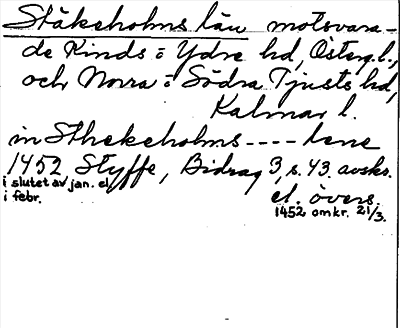 Stäkeholms län motsvara-
de Kinds o Ydre hd, Österg.l.,
och Norra o Södra Tjusts hd,
Kalmar l.
in Sthekeholms ---- lene
1452 Styffe, Bidrag 3, s. 43. avskr.
i slutet av jan. el. el. övers.
i febr. 1452 omkr. 21/3.